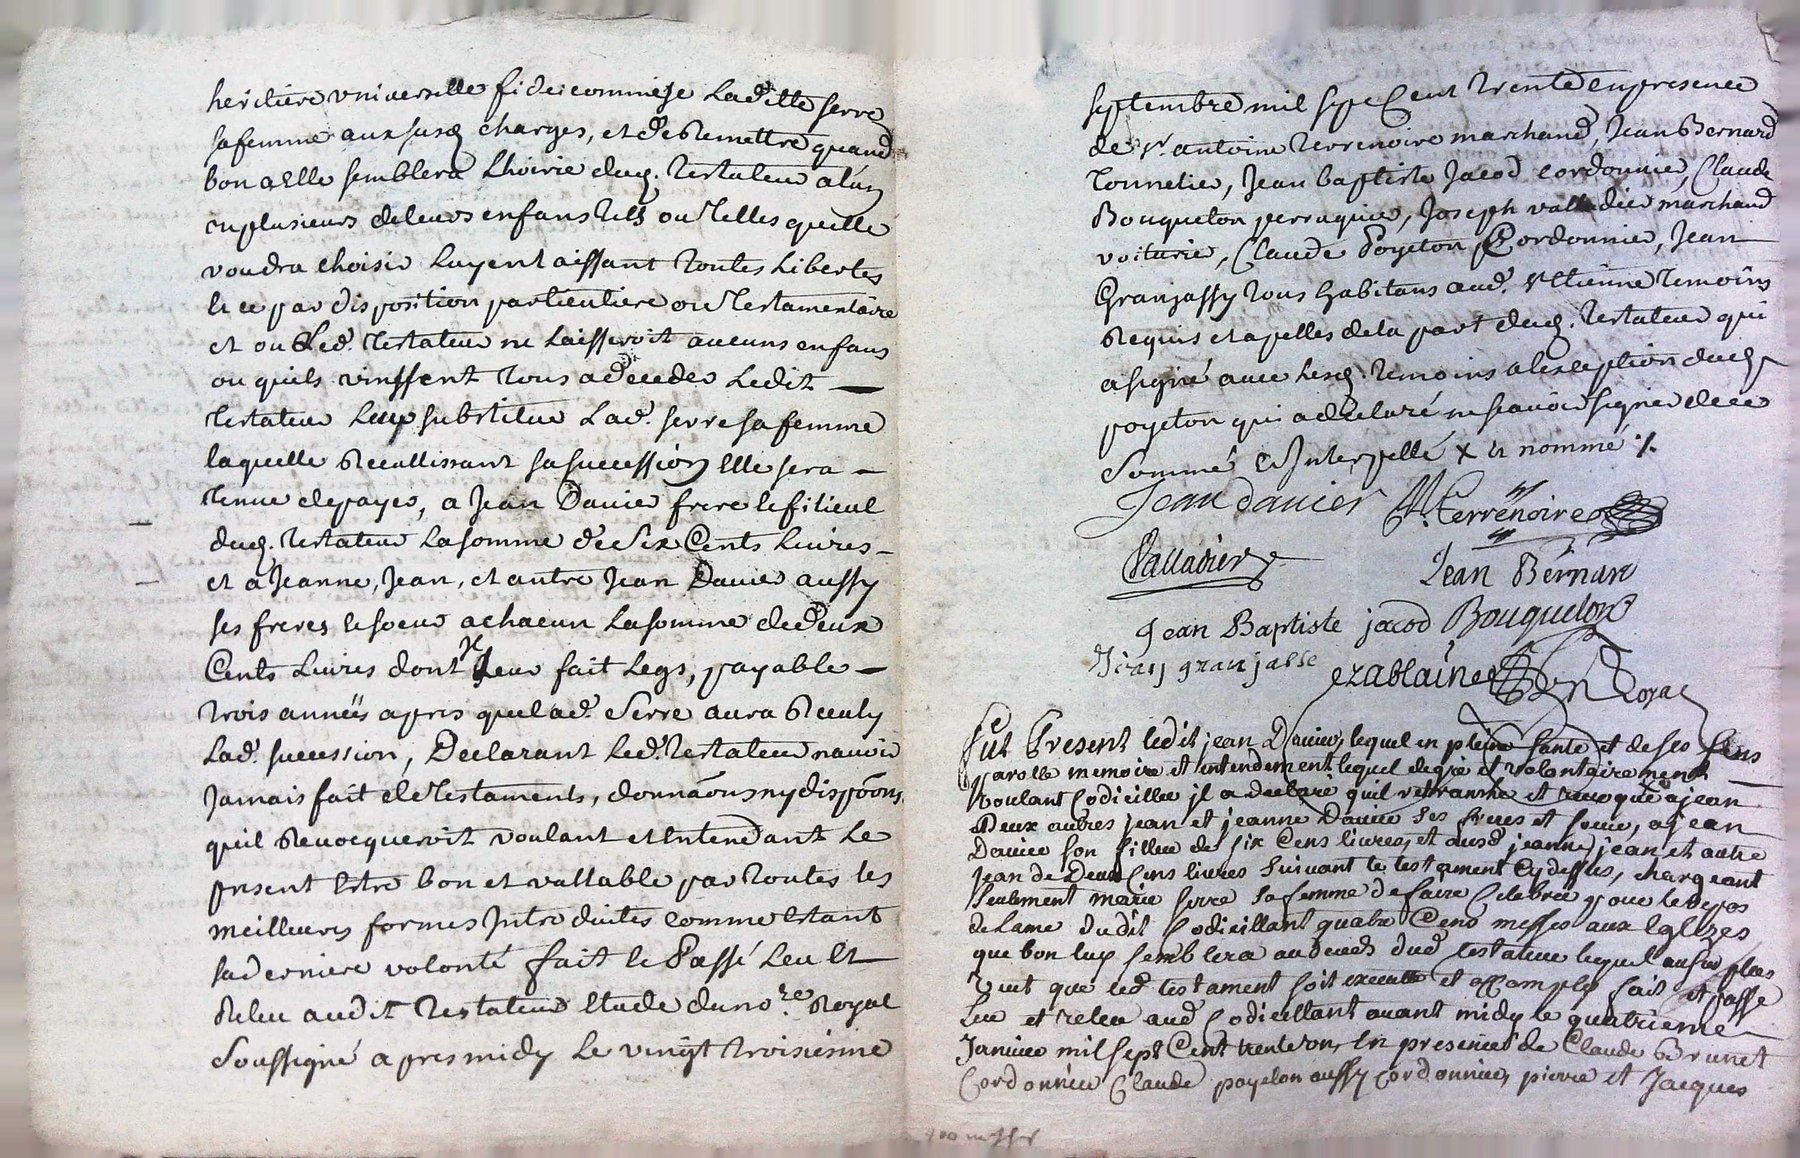 heritiere universelle fideicommise Laditte serre
sa femme aux susd charges, et de Remettre quand
bon a Elle semblera Lhoirie dud. Testateur a lun
ou plusieurs de leurs enfans Tels ou Telles quelle
voudra choisir Luy en Laissant Toutes Libertes
et ce par disposition particuliere ou Testamentaire
et ou Led. Testateur ne Laisseroit aucuns enfans
ou quils vinssent Tous a deceder Ledit —
Testateur Luy substitue Lad. serre sa femme
laquelle Recullissant sa succession Elle sera —
Tenue de payer, a Jean Davier frere et filieul
dud. Testateur La somme de Six Cents Livres —
et a Jeanne, Jean, et autre Jean Davier aussy
ses freres et soeur a chacun La somme de deux
Cents Livres dont x Leur fait Legs, payable —
Trois années apres que lad. Serre aura Reculy
Lad. succession, Declarant Led. Testateur navoir
Jamais fait de Testaments, donnaôns ny dispôons
quil Revoqueroit voulant et Entendant Le
present Estre bon et vallable par Toutes les
meilleures formes Introduites comme Estant
sa derniere volonté fait et Passé Leu Et
Releu audit Testateur Etude du no.re Royal
Soussigné apres midy Le vingt Troisiesme
septembre mil sept Cent Trente en presence
de Sr antoine Terrenoire marchand, Jean Bernard
Tonnelier, Jean baptiste Jacod cordonnier, Claude
Bouqueton perruquier, Joseph valladier marchand
voiturier, Claude Poyeton Cordonnier, Jean
Granjassy Tous habitans aud. st Etienne Temoins
Requis et apelles de la part dud. Testateur qui
a signé avec lesd. Temoins a lexception dud
poyeton qui a declaré ne scavoir signer de ce
Sommé et Interpellé x et nommé
Jean davier Terrenoire
Valladier Jean Bernard
Jean Baptiste jacod Bouqueton
Jean granjasse ezablaine
Fut Present ledit jean Davier, lequel en pleine sante et de ses sens
parolle memoire et entendement lequel de gre et volontairement
Voulant Codiciller il a declaré quil retranche et revoque a jean
Deux autres jean et jeanne Davier ses freres et soeur, a jean
Davier son filleu de six Cens livres, et ausd jeanne, jean et autre
Jean de Deux Cens livres suivant le testament Cy dessus, chargeant
seulement marie serre sa femme de faire Celebrer pour le repos
de Lame dudit Codicillant quatre Cens messes aux Eglizes
que bon luy semblera au deces dud testateur lequel au surplus
veut que led testament soit executte et accomply fait et passe
Leu et releu aud Codicillant avant midy le quatrieme —
Janvier mil sept Cent trente un, En presences de Claude Brunet
Cordonnier Claude poyeton aussy cordonnier, pierre et Jacques